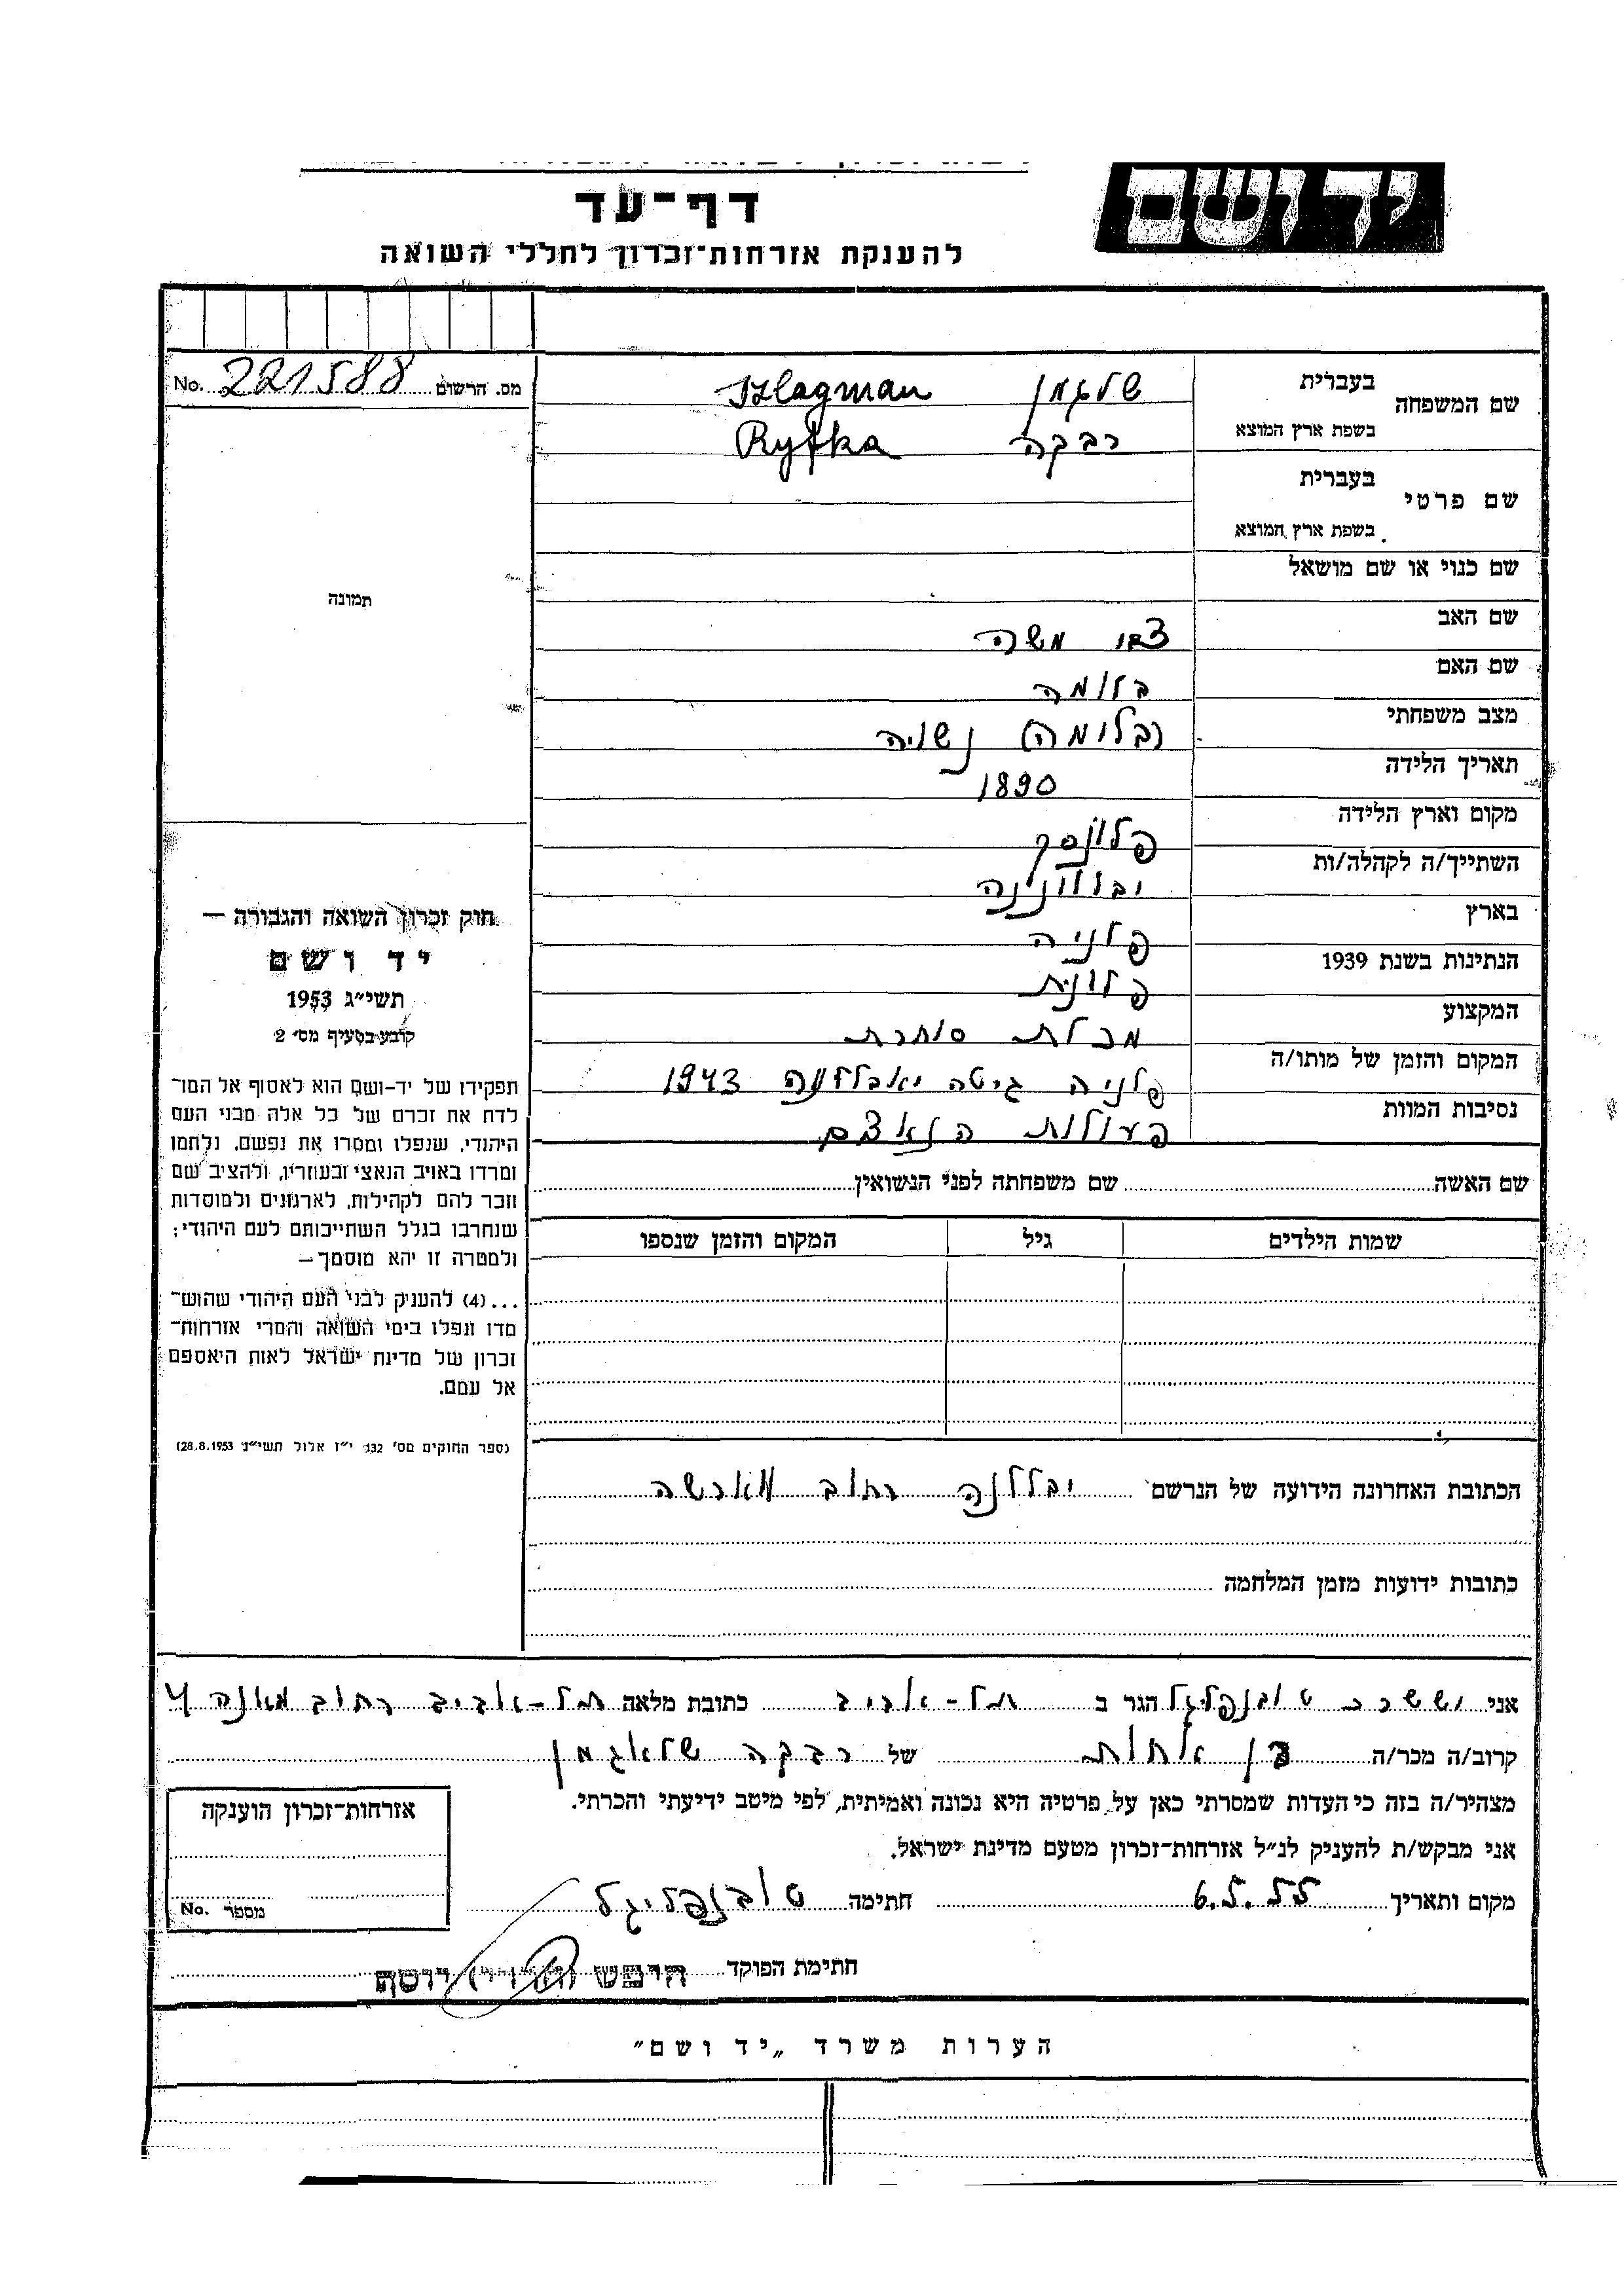 יד ושם
דף-עד
להענקת אזרחות-זכרון לחללי השואה
מס. הרשום 221588 No.
שם המשפחה
בעברית
בשפת ארץ המוצא
שלגמן Szlagman
רבקה Ryfka
שם פרטי
בעברית
בשפת ארץ המוצא
שם כנוי או שם מושאל
תמונה
שם האב צבי משה
שם האם בלומה
מצב משפחתי (בלומה) נשויה
תאריך הלידה 1890
מקום וארץ הלידה פלונסק
השתייך/ה לקהלה/ות
בארץ פלניה
הנתינות בשנת 1939 פלונית
המקצוע מכלת סוחרת
המקום והזמן של מותו/ה פלניה גיטה 1943
נסיבות המוות פעולות
שם האשה שם משפחתה לפני הנשואין
שמות הילדים גיל המקום והזמן שנספו
הכתובת האחרונה הידועה של הנרשם יבללנה רחוב
כתובות ידועות מזמן המלחמה
חוק זכרון השואה והגבורה —
יד ושם
תשי״ג 1953
קובע בסעיף מס׳ 2
תפקידו של יד-ושם הוא לאסוף אל המו־
לדת את זכרם של כל אלה מבני העם
היהודי, שנפלו ומסרו את נפשם, נלחמו
ומרדו באויב הנאצי ובעוזריו, ולהציב שם
וזכר להם לקהילות, לארגונים ולמוסדות
שנחרבו בגלל השתייכותם לעם היהודי;
ולמטרה זו יהא מוסמך—
...(4) להעניק לבני העם היהודי שהוש־
מדו ונפלו בימי השואה והמרי אזרחות־
זכרון של מדינת ישראל לאות היאספם
אל עמם.
(ספר החוקים מס׳ 132 י״ז אלול תשי״ג 28.8.1953)
אני יששכר טובנפליגל הגר ב תל-אביב כתובת מלאה תל-אביב רחוב מאנה 4
קרוב/ה מכר/ה בן אחות של רבקה שלאגמן
מצהיר/ה בזה כי העדות שמסרתי כאן על פרטיה היא נכונה ואמיתית, לפי מיטב ידיעתי והכרתי.
אני מבקש/ת להעניק לנ״ל אזרחות-זכרון מטעם מדינת ישראל.
מקום ותאריך 6.5.55 חתימה טובנפליגל
חתימת הפוקד יוסף
אזרחות-זכרון הוענקה
מספר No.
הערות משרד „יד ושם״